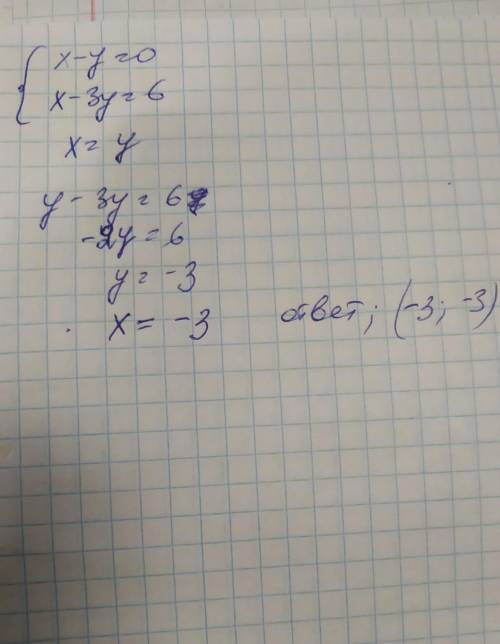 { x-y=0
x-3y=6
x=y
y-3y=6
-2y=6
y=-3
x=-3 ответ; (-3; -3)